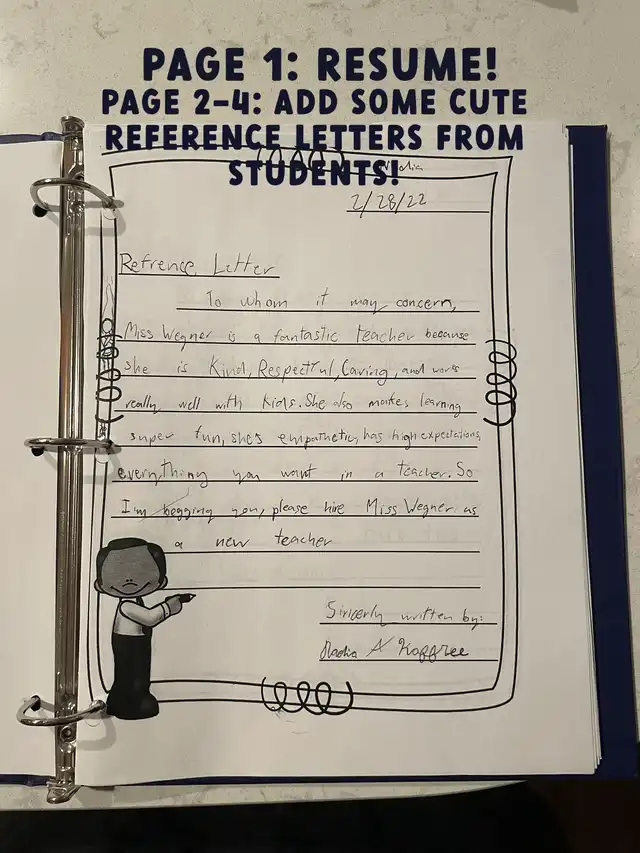 PAGE 1: RESUME!
PAGE 2-4: ADD SOME CUTE
REFERENCE LETTERS FROM
STUDENTS!
2/28/22
Refrence Letter
To whom it may concern,
Miss Wegner is a fantastic teacher because
she is Kind, Respectful, Caring, and works
really well with kids. She also makes learning
super fun, she's empathetic, has high expectations,
everything you want in a teacher. So
I'm begging you, please hire Miss Wegner as
a new teacher
written by:
A